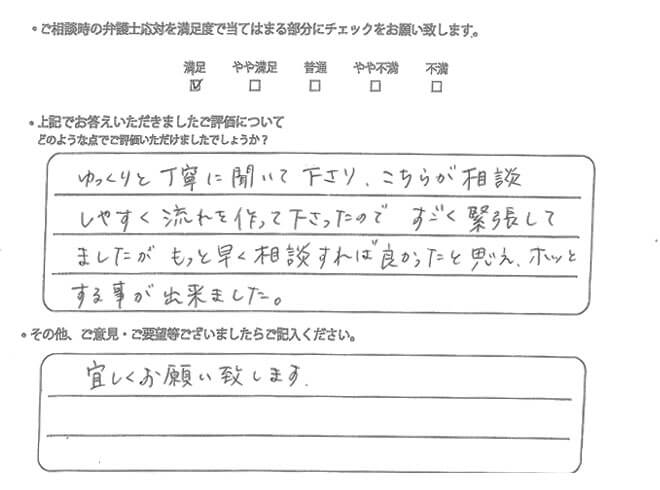 ・ご相談時の弁護士応対を満足度で当てはまる部分にチェックをお願い致します。
満足 やや満足 普通 やや不満 不満
☑ □ □ □ □
・上記でお答えいただきましたご評価について
どのような点でご評価いただけましたでしょうか？
ゆっくりと丁寧に聞いて下さり、こちらが相談
しやすく流れを作って下さったので すごく緊張して
ましたが もっと早く相談すれば良かったと思え、ホッと
する事が出来ました。
・その他、ご意見・ご要望等ございましたらご記入ください。
宜しくお願い致します.